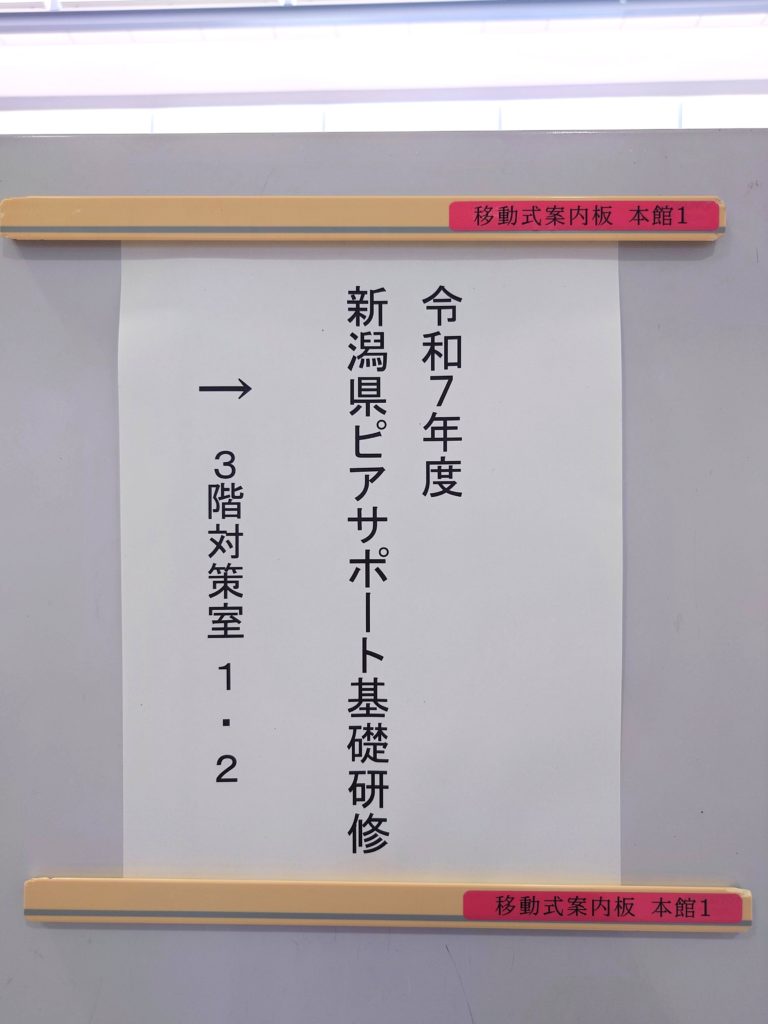 移動式案内板 本館1
令和7年度
新潟県ピアサポート基礎研修
→ 3階対策室 1・2
移動式案内板 本館1